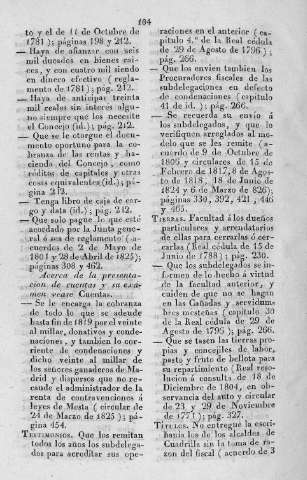 104
to y el de 11 de Octubre de
1781); páginas 198 y 212.
— Haya de afianzar con seis
mil ducados en bienes rai-
ces, y con cuatro mil siendo
en dinero efectivo (regla-
mento de 1781); pág. 212.
— Haya de anticipar treinta
mil reales sin interes algu-
no siempre que los necesite
el Concejo (id.); pág. 212.
— Que se le otorgue el docu-
mento oportuno para la co-
branza de las rentas y ha-
ciendo del Concejo, como
réditos de capitales y otras
cosas equivalentes (id.); pá-
gina 212.
— Tenga libro de caja de car-
go y data (id.); pág. 212.
— Que solo pague lo que esté
acordado por la Junta gene-
ral ó sea de reglamento (a-
cuerdos de 2 de Mayo de
1801 y 28 de Abril de 1825);
páginas 308 y 462.
Acerca de la presenta-
cion de cuentas y su exá-
men véase Cuentas.
— Se le encarga la cobranza
de todo lo que se adeude
hasta fin de 1819 por el veinte
al millar, donativos y conde-
naciones, y tambien lo cor-
riente de condenaciones y
dicho veinte al millar de
los señores ganaderos de Ma-
drid y dispersos que no re-
caude el administrador de la
renta de contravenciones á
leyes de Mesta (circular de
24 de Marzo de 1825); pá-
gina 454.
TESTIMONIOS. Que los remitan
todos los años los subdelega-
dos para acreditar sus ope-
raciones en el anterior (ca-
pítulo 4.º de la Real cédula
de 29 de Agosto de 1796);
pág. 266.
— Que los envien tambien los
Procuradores fiscales de las
subdelegaciones en defecto
de condenaciones (capítulo
41 de id.); pág. 266.
— Se recuerda su envío á
los subdelegados, y que lo
verifiquen arreglados al mo-
delo que se les remite (a-
cuerdo de 9 de Octubre de
1806, y circulares de 15 de
Febrero de 1817, 8 de Agos-
to de 1818, 18 de Junio de
1824 y 6 de Marzo de 826);
páginas 330, 392, 421, 446
y 465.
TIERRAS. Facultad á los dueños
particulares y arrendatarios
de ellas para cerrarlas ó cer-
carlas (Real cédula de 15 de
Junio de 1788); pág. 230.
— Que los subdelegados se in-
formen de lo hecho á virtud
de la facultad anterior, y
cuiden de que no se hagan
en las Cañadas y servidum-
bres mesteñas (capítulo 30
de la Real cédula de 29 de
Agosto de 1796); pág. 266.
— Que se tasen las tierras pro-
pias y concejiles de labor,
pasto y fruto de bellota para
su repartimiento (Real reso-
lucion á consulta de 18 de
Diciembre de 1804, en ob-
servancia del auto y circular
de 23 y 29 de Noviembre
de 1771); pág. 327.
TITULOS. No entregue la escri-
bania los de los alcaldes de
Cuadrilla sin la toma de ra-
zon del fiscal (acuerdo de 3